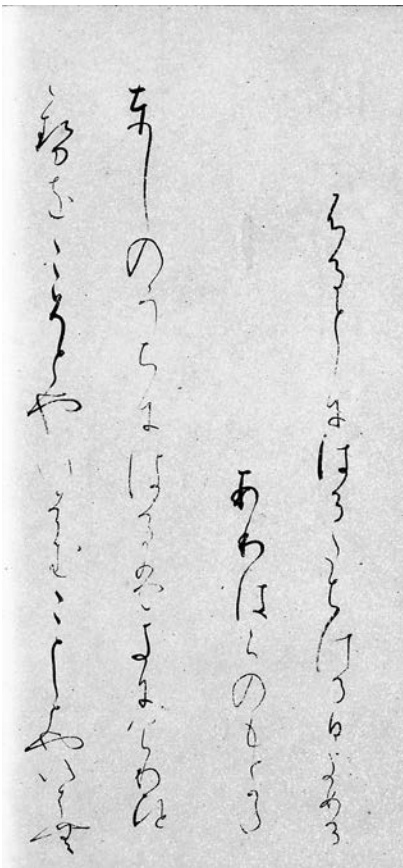 ふるとしにはるたちける日よめる
ありはらのもとかた
としのうちにはるはきにけりひと
ゝせをこそとやいはむことしとやいはむ